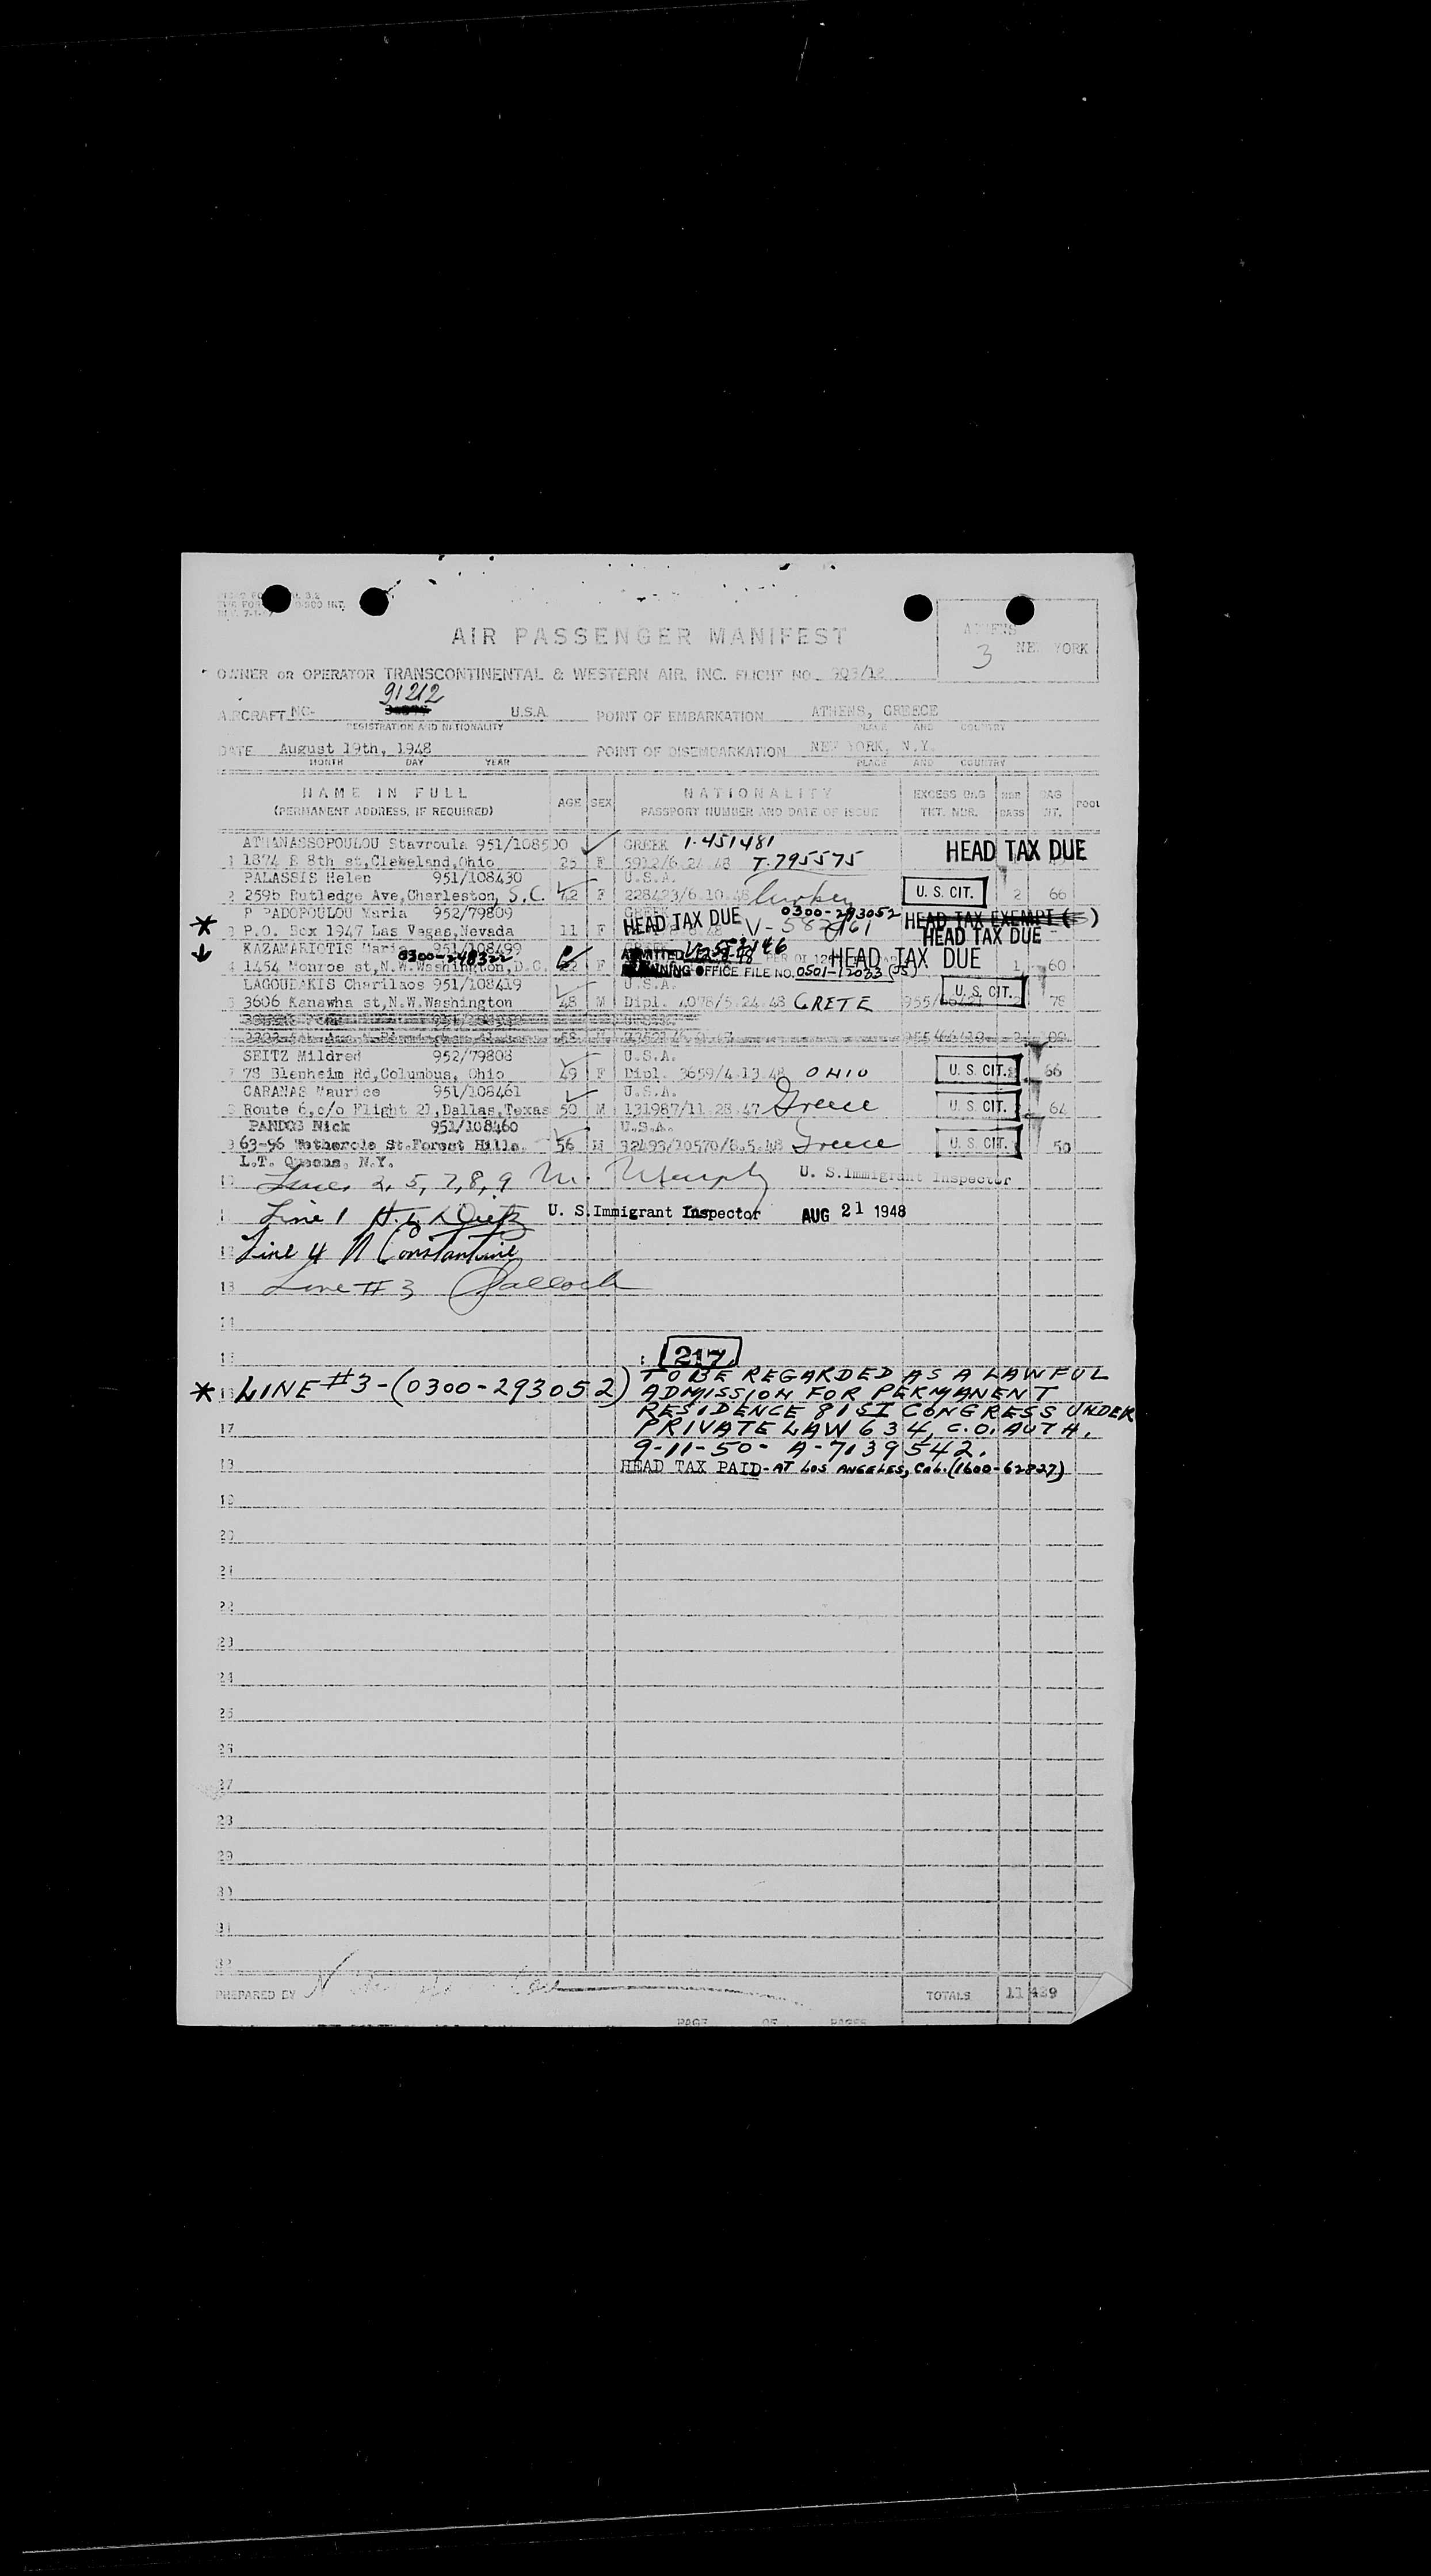 AIR PASSENGER MANIFEST
ATHENS
3 NEW YORK
OWNER OR OPERATOR TRANSCONTINENTAL & WESTERN AIR, INC. FLIGHT NO.
91212
AIRCRAFT NC- U.S.A. POINT OF EMBARKATION ATHENS, GREECE
REGISTRATION AND NATIONALITY PLACE AND COUNTRY
DATE August 19th, 1948 POINT OF DISEMBARKATION NEW YORK, N.Y.
MONTH DAY YEAR PLACE AND COUNTRY
NAME IN FULL AGE SEX NATIONALITY EXCESS BAG NBR. BAG POOL
(PERMANENT ADDRESS, IF REQUIRED) PASSPORT NUMBER AND DATE OF ISSUE TKT. NBR. BAGS WT.
ATHANASSOPOULOU Stavroula 951/108500 GREEK 1-451481 HEAD TAX DUE
1 1874 E 8th st,Clebeland,Ohio 25 F 5912/6.24.48 T.795575
PALASSIS Helen 951/108430 U.S.A.
2 259b Rutledge Ave,Charleston, S.C. 42 F 228423/6.10.48 Turkey U. S. CIT. 2 66
P PADOPOULOU Maria 952/79809 GREEK HEAD TAX DUE 0300-293052 HEAD TAX EXEMPT
* 3 P.O. Box 1947 Las Vagas,Nevada 11 F HEAD TAX DUE
KAZAMARIOTIS Maria 951/108499 HEAD TAX DUE
0300-248322
4 1454 Monroe st,N.W.Washington,D.C. F OFFICE FILE NO. 0501-12033 1 60
LAGOUDAKIS Charilaos 951/108419 U.S.A. U. S. CIT.
5 3606 Kanawha st,N.W.Washington 48 M Dipl. 4078/5.24.48 CRETE 78
SEITZ Mildred 952/79808 U.S.A.
7 78 Blenheim Rd,Columbus, Ohio 49 F Dipl. 3659/4.13.48 OHIO U. S. CIT. 66
CARANAS Maurice 951/108461 U.S.A.
8 Route 6,c/o Flight 21,Dallas,Texas 50 M 131987/11.28.47 Greece U. S. CIT. 64
PANDOS Nick 951/108460 U.S.A.
9 63-96 Wetherole St.Forest Hills. 56 M 32493/10570/8.5.48 Greece U. S. CIT. 50
L.T. Queens, N.Y.
10 Lines 2, 5, 7, 8, 9 M. Murphy U. S. Immigrant Inspector
Line 1 U. S. Immigrant Inspector AUG 21 1948
12 Line 4 N Constantine
13 Line # 3
14
15 217
* 16 LINE #3-(0300-293052) TO BE REGARDED AS A LAWFUL
ADMISSION FOR PERMANENT
RESIDENCE 81ST CONGRESS UNDER
17 PRIVATE LAW 634, C.O. AUTH.
9-11-50- A-7139542.
18 HEAD TAX PAID-AT LOS ANGELES, Cal. (1600-62827)
19
20
21
22
23
24
25
26
27
28
29
30
31
32
PREPARED BY TOTALS 11 439
PAGE OF PAGES